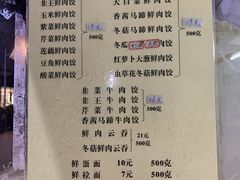 韭王鲜肉饺
玉米鲜肉饺
紫菜鲜肉饺
芹菜鲜肉饺
莲藕鲜肉饺
豆角鲜肉饺
酸菜鲜肉饺
500克
大白菜鲜肉饺
香茜马蹄鲜肉饺
冬菇马蹄鲜肉饺
冬瓜
红萝卜大葱鲜肉饺
虫草花冬菇鲜肉饺
500克
韭菜牛肉饺
韭王牛肉饺
芹菜牛肉饺
香茜马蹄牛肉饺
500克
鲜肉云吞 21元
冬菇鲜肉云吞 500克
鲜蛋面 10元 500克
鲜拉面 7元 500克